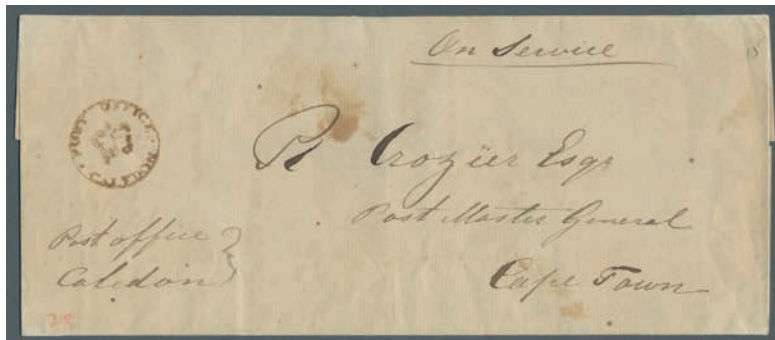 On Service
POST OFFICE
CALEDON
R Crozier Esqr
Post Master General
Cape Town
Post office
Caledon